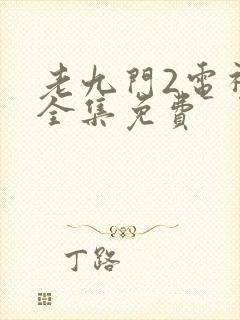 老九門2雷
全集免費
丁路